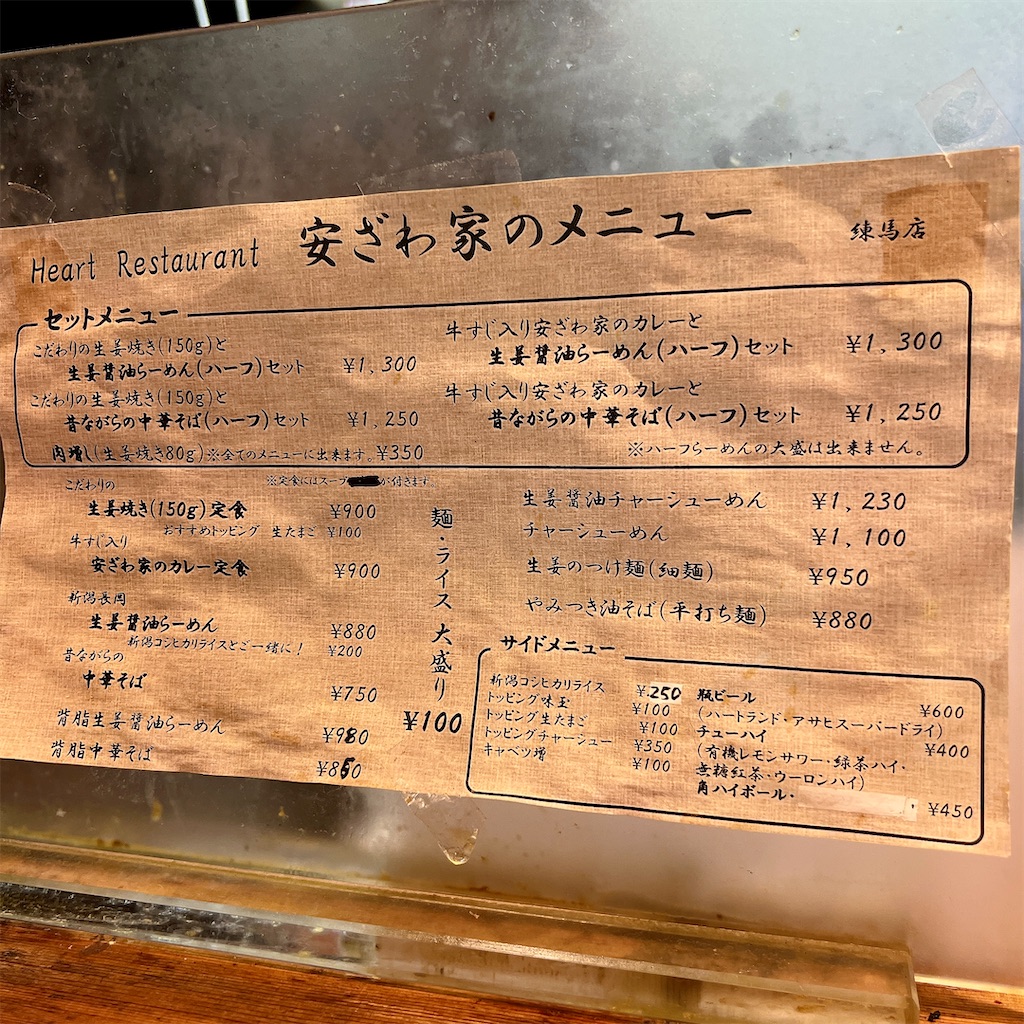 Heart Restaurant 安ざわ家のメニュー 練馬店
セットメニュー
こだわりの生姜焼き(150g)と
生姜醤油らーめん(ハーフ)セット ¥1,300
こだわりの生姜焼き(150g)と
昔ながらの中華そば(ハーフ)セット ¥1,250
肉増し(生姜焼き80g)※全てのメニューに出来ます。¥350
牛すじ入り安ざわ家のカレーと
生姜醤油らーめん(ハーフ)セット ¥1,300
牛すじ入り安ざわ家のカレーと
昔ながらの中華そば(ハーフ)セット ¥1,250
※ハーフらーめんの大盛は出来ません。
※定食にはスープ が付きます。
こだわりの
生姜焼き(150g)定食 ¥900
おすすめトッピング 生たまご ¥100
牛すじ入り
安ざわ家のカレー定食 ¥900
新潟長岡
生姜醤油らーめん ¥880
新潟コシヒカリライスとご一緒に! ¥200
昔ながらの
中華そば ¥750
背脂生姜醤油らーめん ¥980
背脂中華そば ¥850
麺・ライス大盛り
¥100
生姜醤油チャーシューめん ¥1,230
チャーシューめん ¥1,100
生姜のつけ麺(細麺) ¥950
やみつき油そば(平打ち麺) ¥880
サイドメニュー
新潟コシヒカリライス ¥250
トッピング味玉 ¥100
トッピング生たまご ¥100
トッピングチャーシュー ¥350
キャベツ増 ¥100
瓶ビール ¥600
(ハートランド・アサヒスーパードライ)
チューハイ ¥400
(有機レモンサワー・緑茶ハイ・
無糖紅茶・ウーロンハイ)
角ハイボール・ ¥450